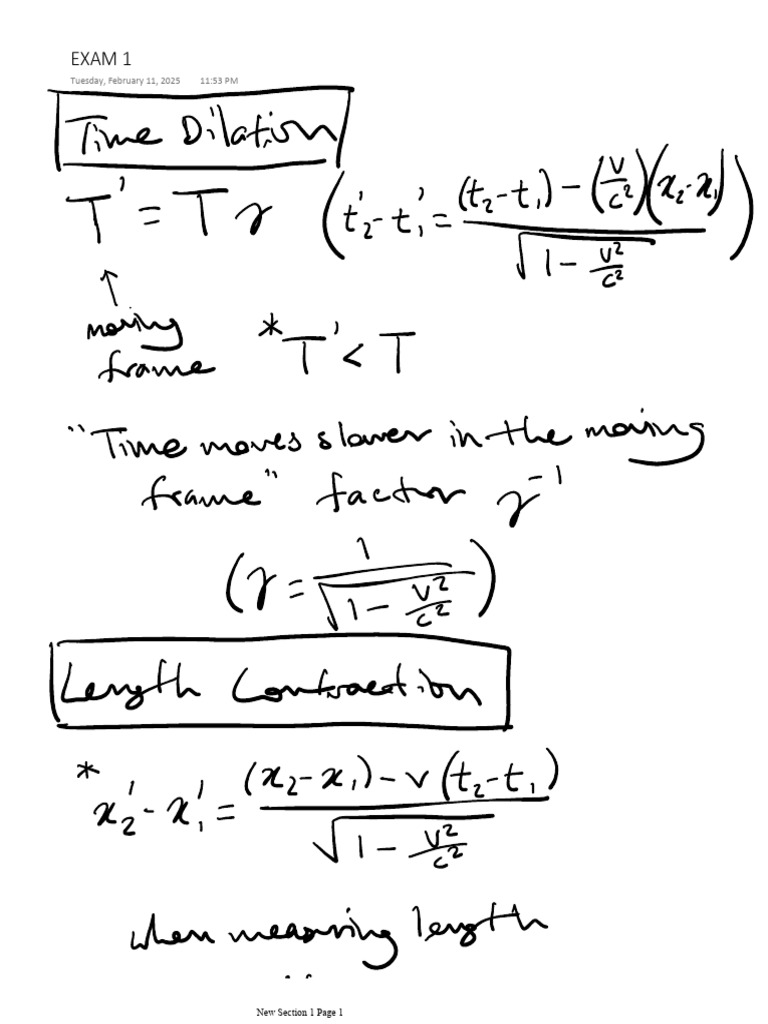 EXAM 1
Tuesday, February 11, 2025 11:53 PM
Time Dilation
T' = Tγ (t₂'-t₁' = ((t₂-t₁) - (v/c²)(x₂-x₁))/√(1 - v²/c²))
↑
moving
frame *T' < T
"Time moves slower in the moving
frame" factor γ⁻¹
(γ = 1/√(1 - v²/c²))
Length Contraction
* x₂'-x₁' = ((x₂-x₁) - v(t₂-t₁))/√(1 - v²/c²)
when measuring length
New Section 1 Page 1